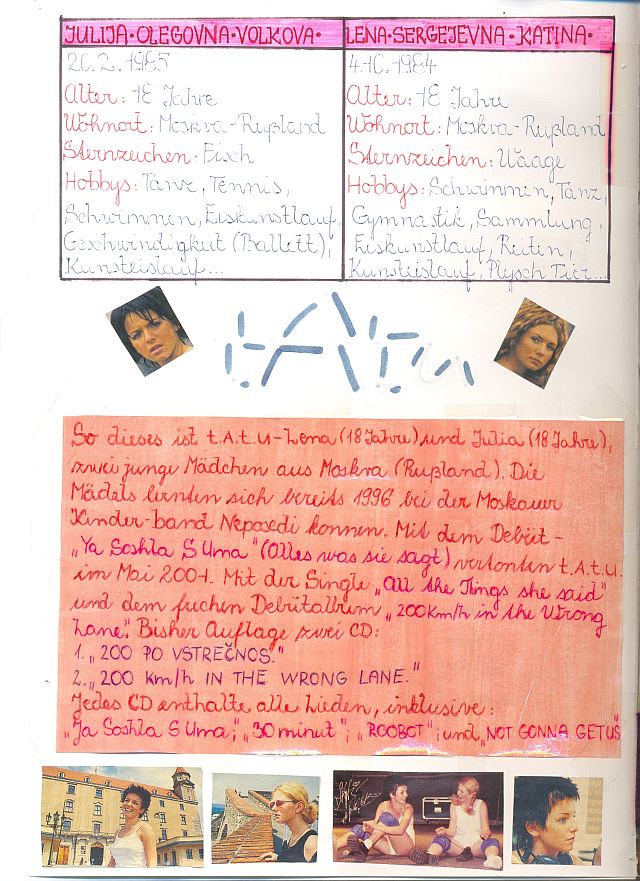 JULIJA·OLEGOVNA·VOLKOVA·
20.2.1985
Alter: 18 Jahre
Wohnort: Moskva-Rußland
Sternzeichen: Fisch
Hobbys: Tanz, Tennis,
Schwimmen, Eiskunstlauf,
Geschwindigkeit (Ballett),
Kunsteislauf...
LENA·SERGEJEVNA·KATINA·
4.10.1984
Alter: 18 Jahre
Wohnort: Moskva-Rußland
Sternzeichen: Waage
Hobbys: Schwimmin, Tanz,
Gymnastik, Sammlung,
Eiskunstlauf, Reiten,
Kunsteislauf, Plysch Tier...
t.A.T.u
So dieses ist t.A.t.u-Lena (18 Jahre) und Julia (18 Jahre),
zwei junge Mädchen aus Moskva (Rußland). Die
Mädels lernten sich bereits 1996 bei der Moskauer
Kinder-band Neposedi konnen. Mit dem Debüt-
"Ya Soshla S Uma" (Alles was sie sagt) vertonten t.A.t.U.
im Mai 2001. Mit der Single "All the Things she said"
und dem fuchen Debütalbum "200 Km/h in the Wrong
Lane". Bisher Auflage zwei CD:
1. "200 PO VSTREČNOS."
2. "200 Km/h IN THE WRONG LANE."
Jedes CD enthalte alle Lieden, inklusive:
"Ja Soshla S Uma"; "30 minut"; "ROOBOT"; und "NOT GONNA GET US"